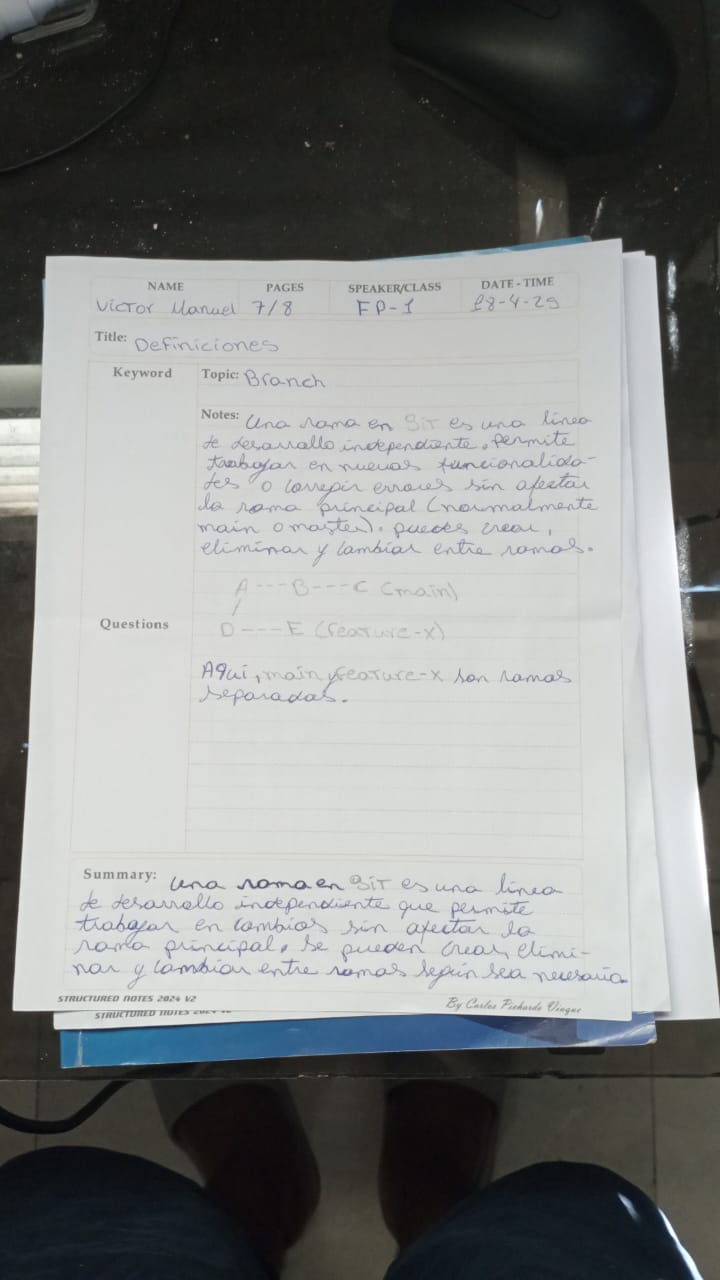 NAME PAGES SPEAKER/CLASS DATE - TIME
Victor Manuel 7/8 FP-1 28-4-25
Title: Definiciones
Keyword Topic: Branch
Notes: Una rama en Git es una línea
de desarrollo independiente. Permite
trabajar en nuevas funcionalida-
des o corregir errores sin afectar
la rama principal (normalmente
main o master). puedes crear,
eliminar y cambiar entre ramas.
A---B---C (main)
/
Questions D---E (feature-x)
Aquí, main y feature-x son ramas
separadas.
Summary: Una rama en Git es una línea
de desarrollo independiente que permite
trabajar en cambios sin afectar la
rama principal. Se pueden crear, elimi-
nar y cambiar entre ramas según sea necesario
STRUCTURED NOTES 2024 V2 By Carlos Pichardo Vinque
STRUCTURED NOTES 2024 V2